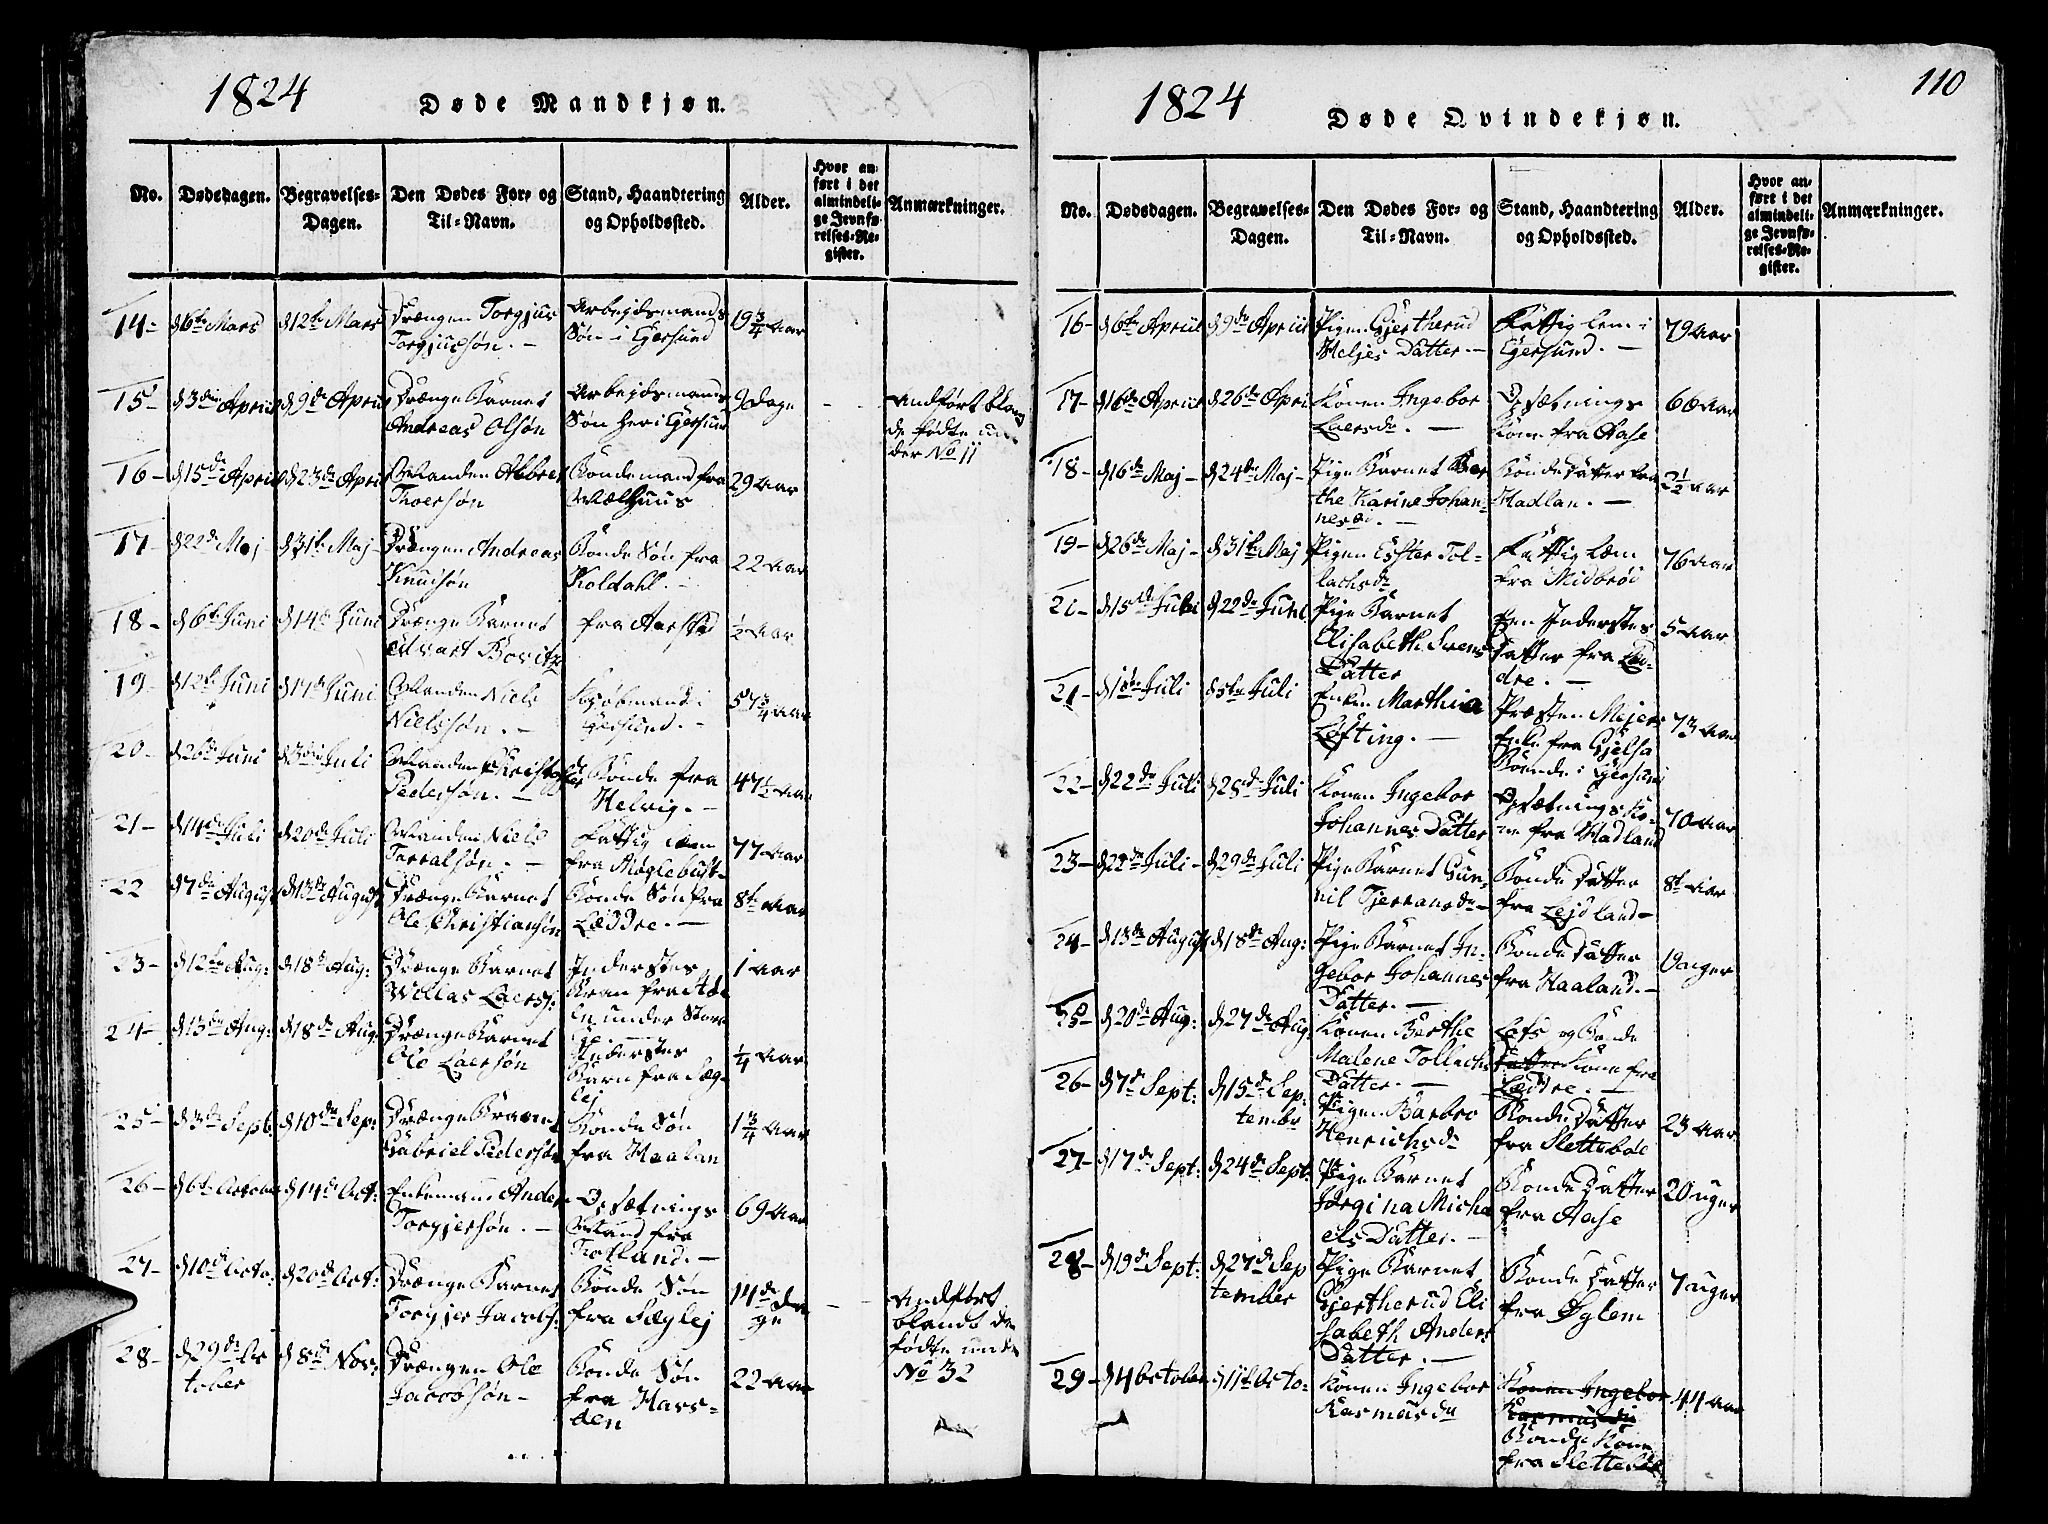 1824
Døde Mandkjøn.
No.
Dødsdagen.
Begravelses-
Dagen.
Den Dødes For- og
Til-Navn.
Stand, Haandtering
og Opholdssted.
Alder.
Hvor an-
ført i det
almindeli-
ge Jevnfø-
relses-Re-
gister.
Anmærkninger.
14- d 6te Mars d 12te Mars Drængen Torgjus
Torgjusøn. - Arbejdsmands
Søn i Egersund 19¾ Aar
15- d 3die Apriil d 9de Apriil Drænge Barnet
Andreas Olsøn Arbejdsmands
Søn her i Egersund 9 Dage
Andført blan
de fødte un
der No 11
16- d 15de Apriil d 23de Apriil Manden Abbret
Thoersøn Bondemand fra
Mælhuus 29 Aar
17- d 22de Maj d 31te Maj Drængen Andreas
Knudsøn Bonde Søn fra
Koldahl. - 22 Aar
18- d 6te Juni d 14de Juni Drænge Barnet
Edvart Bovitz fra Aarstad ½ Aar
19- d 12te Juni d 17de Juni Manden Niels
Nielsøn. - Kjøbmand i
Egersund. - 57¾ Aar
20- d 26de Juni d 3die Juli Manden Christoffer
Pedersøn. - Bonde fra
Helvig. - 47½ Aar
21- d 14de Juli d 20de Juli Manden Niels
Tarralsøn. - Fattig Lem
fra Møglebust- 77 Aar
22 d 7de August d 13de August Drænge Barnet
Ole Christiansøn Bonde Søn fra
Læddre. - 8te Aar
23- d 12te Aug: d 18de Aug: Drænge Barnet
Willas Laers: Inderstes
Bran fra
en under
1 Aar
24- d 13de Aug: d 18de Aug: Drænge Barnet
Ole Laersøn Inderstes
Barn fra Sæg-
lej ¼ Aar
25- d 3de Sept: d 10de Sep: Drænge Brarnet
Gabriel Pedersøn Bonde Søn
fra Haalan 1¾ Aar
26- d 6te October d 14de Oct: Enkemand Ander
Torgjersøn. - Opsætnings
Mand fra
Trotland. - 69 Aar
27- d 10de Octo: d 20de Oct: Drænge Barnet
Torgjer Jacobs: Bonde Søn
fra Sæglej 14de Da
ge
Andført
blandt de
fødte under
No 32
28- d 29de Oc
tober d 8de Nov: Drængen Ole
Jacobsøn- Bonde Søn
fra Hars-
den 22 Aar
110
1824
Døde Qvindekjøn.
No.
Dødsdagen.
Begravelses-
Dagen.
Den Dødes For- og
Til-Navn.
Stand, Haandtering
og Opholdssted.
Alder.
Hvor an-
ført i det
almindeli-
ge Jevnfø-
relses-Re-
gister.
Anmærkninger.
16- d 6te Apriil d 9de Apriil Pigen Gjertherud
Heljes Datter- Fattig Lem i
Egersund. - 79 Aar
17- d 16de Apriil d 26de Apri Konen Ingebor
Laersdr. - Opsætnings
Kone fra Aase 66 Aar
18- d 16de Maj- d 24de Maj- Pige Barnet Ber
the Karine Johan-
nesdr. - Bonde Datter fra
Hadlan. - 2½ Aar
19- d 26de Maj- d 31te Maj Pigen Esster Tol-
lachsdr Fattig Lem
fra Midbrød 76 Aar
21- d 15de Juni d 22de Juni Pige Barnet
Elisabeth Svens
Datter en Inderstes
Datter fra Læd-
dre. - 5 Aar
21- d 1ste Juli d 5te Juli Enken Marthia
Løfting. - Præsten Mejers
Enke fra Gjelsa
Boende i Egersund 73 Aar
22- d 22de Juli d 28de Juli Konen Ingebor
Johannes Datter Opsætnings Ko-
ne fra Hadland 70 Aar
23- d 22de Juli- d 29de Juli Pige Barnet Gun-
nil Tjerransdr- Bonde Datter
fra Lejdland- 8te Aar
24- d 13de August d 18de Aug: Pige Barnet In-
gebor Johannes
Datter. - Bonde Datter
fra Haaland. - 9 uger
25- d 20de Aug: d 27de Aug: Konen Berthe
Malene Tollachs
Datter. - Lefs og Bonde
Datter Kone fra
Læddre. -
26- d 7de Sept: d 15de Sep-
tembr Pigen Barbro
Henrichsdr Bonde Datter
fra Slettebøe 23 Aar
27- d 17de Sept: d 24de Sept: Pige Barnet
Jørgina Micha
els Datter. - Bonde Datter
fra Aase 20 uger
28- d 19de Sept: d 27de Sep
tember Pige Barnet
Gjertherud Eli
sabeth Anders
Datter. - Bonde Datter
fra Øglem 7 uger
29- d 4 October d 11te Octo- Konen Ingebor
Rasmusdr Konen Ingebor
Rasmusdr
Bonde Kone
fra Slettebøe 44 Aar